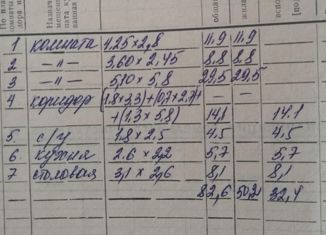 общая
жилая
1 комната 4.25 × 2,8 11,9 11,9
2 –〃– 3,60 × 2,45 8,8 8,8
3 –〃– 5,10 × 5,8 29,5 29,5
4 коридор (1.8×3,3)+(0,7×2,7)+ — — —
+(1,3 × 5,8) 14,1 14.1
5. с/у 1,8 × 2,5 4,5 4,5
6. кухня 2.6 × 2,2 5,7 5,7
7 столовая 3,1 × 2,6 8,1 8,1
82,6 50,2 32,4